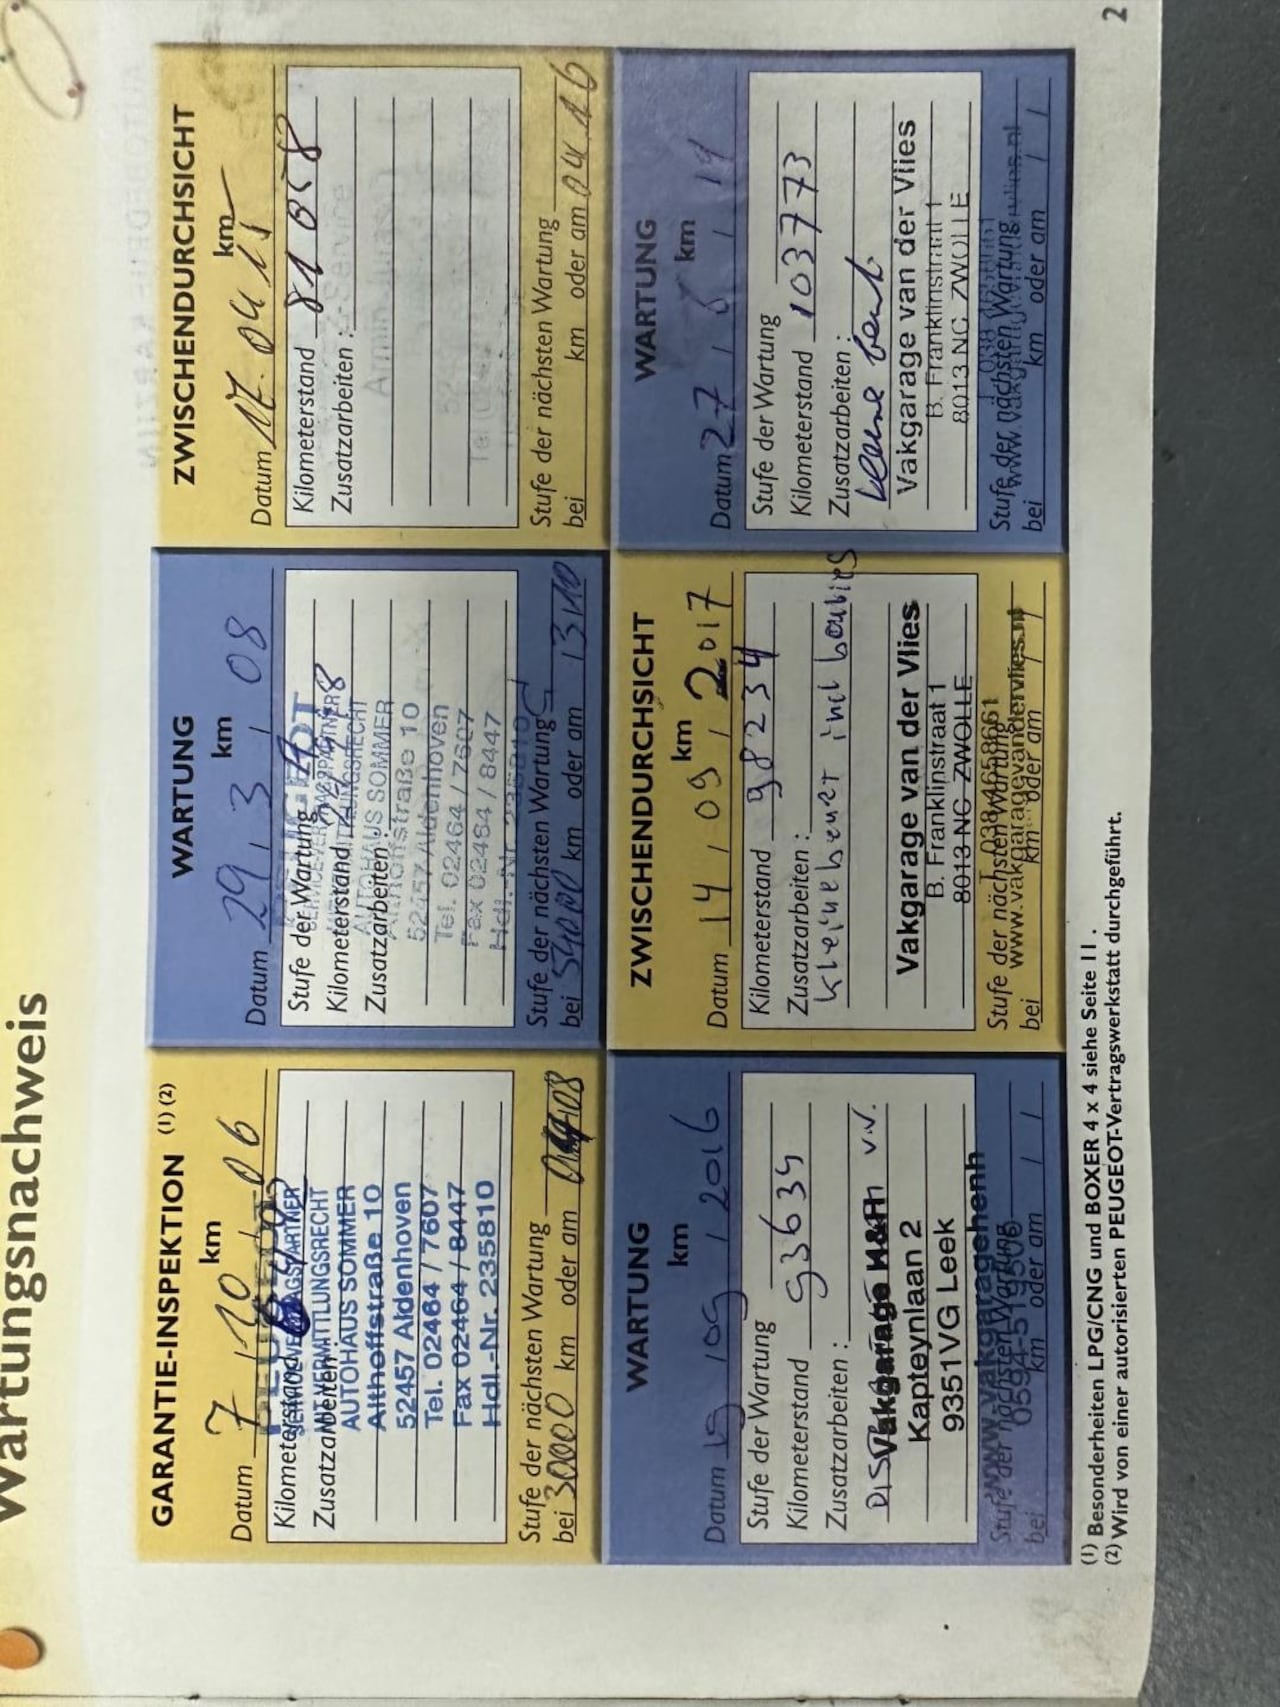 Wartungsnachweis
GARANTIE-INSPEKTION (1) (2)
km
Datum 7 / 10 / 06
Kilometerstand
Zusatzarbeiten:
PEUGEOT
MIT VERMITTLUNGSRECHT
AUTOHAUS SOMMER
Althoffstraße 10
52457 Aldenhoven
Tel. 02464 / 7607
Fax 02464 / 8447
Hdl.-Nr. 235810
Stufe der nächsten Wartung
bei 3000 km oder am
WARTUNG
km
Datum 29 / 3 / 08
Stufe der Wartung A
PEUGEOT
Kilometerstand
MIT VERMITTLUNGSRECHT
Zusatzarbeiten:
AUTOHAUS SOMMER
Althoffstraße 10
52457 Aldenhoven
Tel. 02464 / 7607
Fax 02464 / 8447
Hdl.-Nr. 235810
Stufe der nächsten Wartung C
bei km oder am 13/10
ZWISCHENDURCHSICHT
km
Datum 17.04.15
Kilometerstand 81058
Zusatzarbeiten:
Stufe der nächsten Wartung
bei km oder am 04.16
WARTUNG
km
Datum 19 / 09 / 2016
Stufe der Wartung
Kilometerstand 93634
Zusatzarbeiten:
v.v.
Vakgarage H&H
Kapteynlaan 2
9351VG Leek
www.vakgaragehenh
0594-519506
Stufe der nächsten Wartung
bei km oder am / /
ZWISCHENDURCHSICHT
km
Datum 14 / 09 / 2017
Kilometerstand 98234
Zusatzarbeiten:
kleine beurt incl bougies
Vakgarage van der Vlies
B. Franklinstraat 1
8013 NC ZWOLLE
038-4658661
Stufe der nächsten Wartung
www.vakgaragevandervlies.nl
bei km oder am / /
WARTUNG
km
Datum 27 / 8 / 19
Stufe der Wartung
Kilometerstand 103773
Zusatzarbeiten:
kleine beurt
Vakgarage van der Vlies
B. Franklinstraat 1
8013 NC ZWOLLE
038-4658661
Stufe der nächsten Wartung
www.vakgaragevandervlies.nl
bei km oder am / /
(1) Besonderheiten LPG/CNG und BOXER 4 x 4 siehe Seite 11.
(2) Wird von einer autorisierten PEUGEOT-Vertragswerkstatt durchgeführt.
2